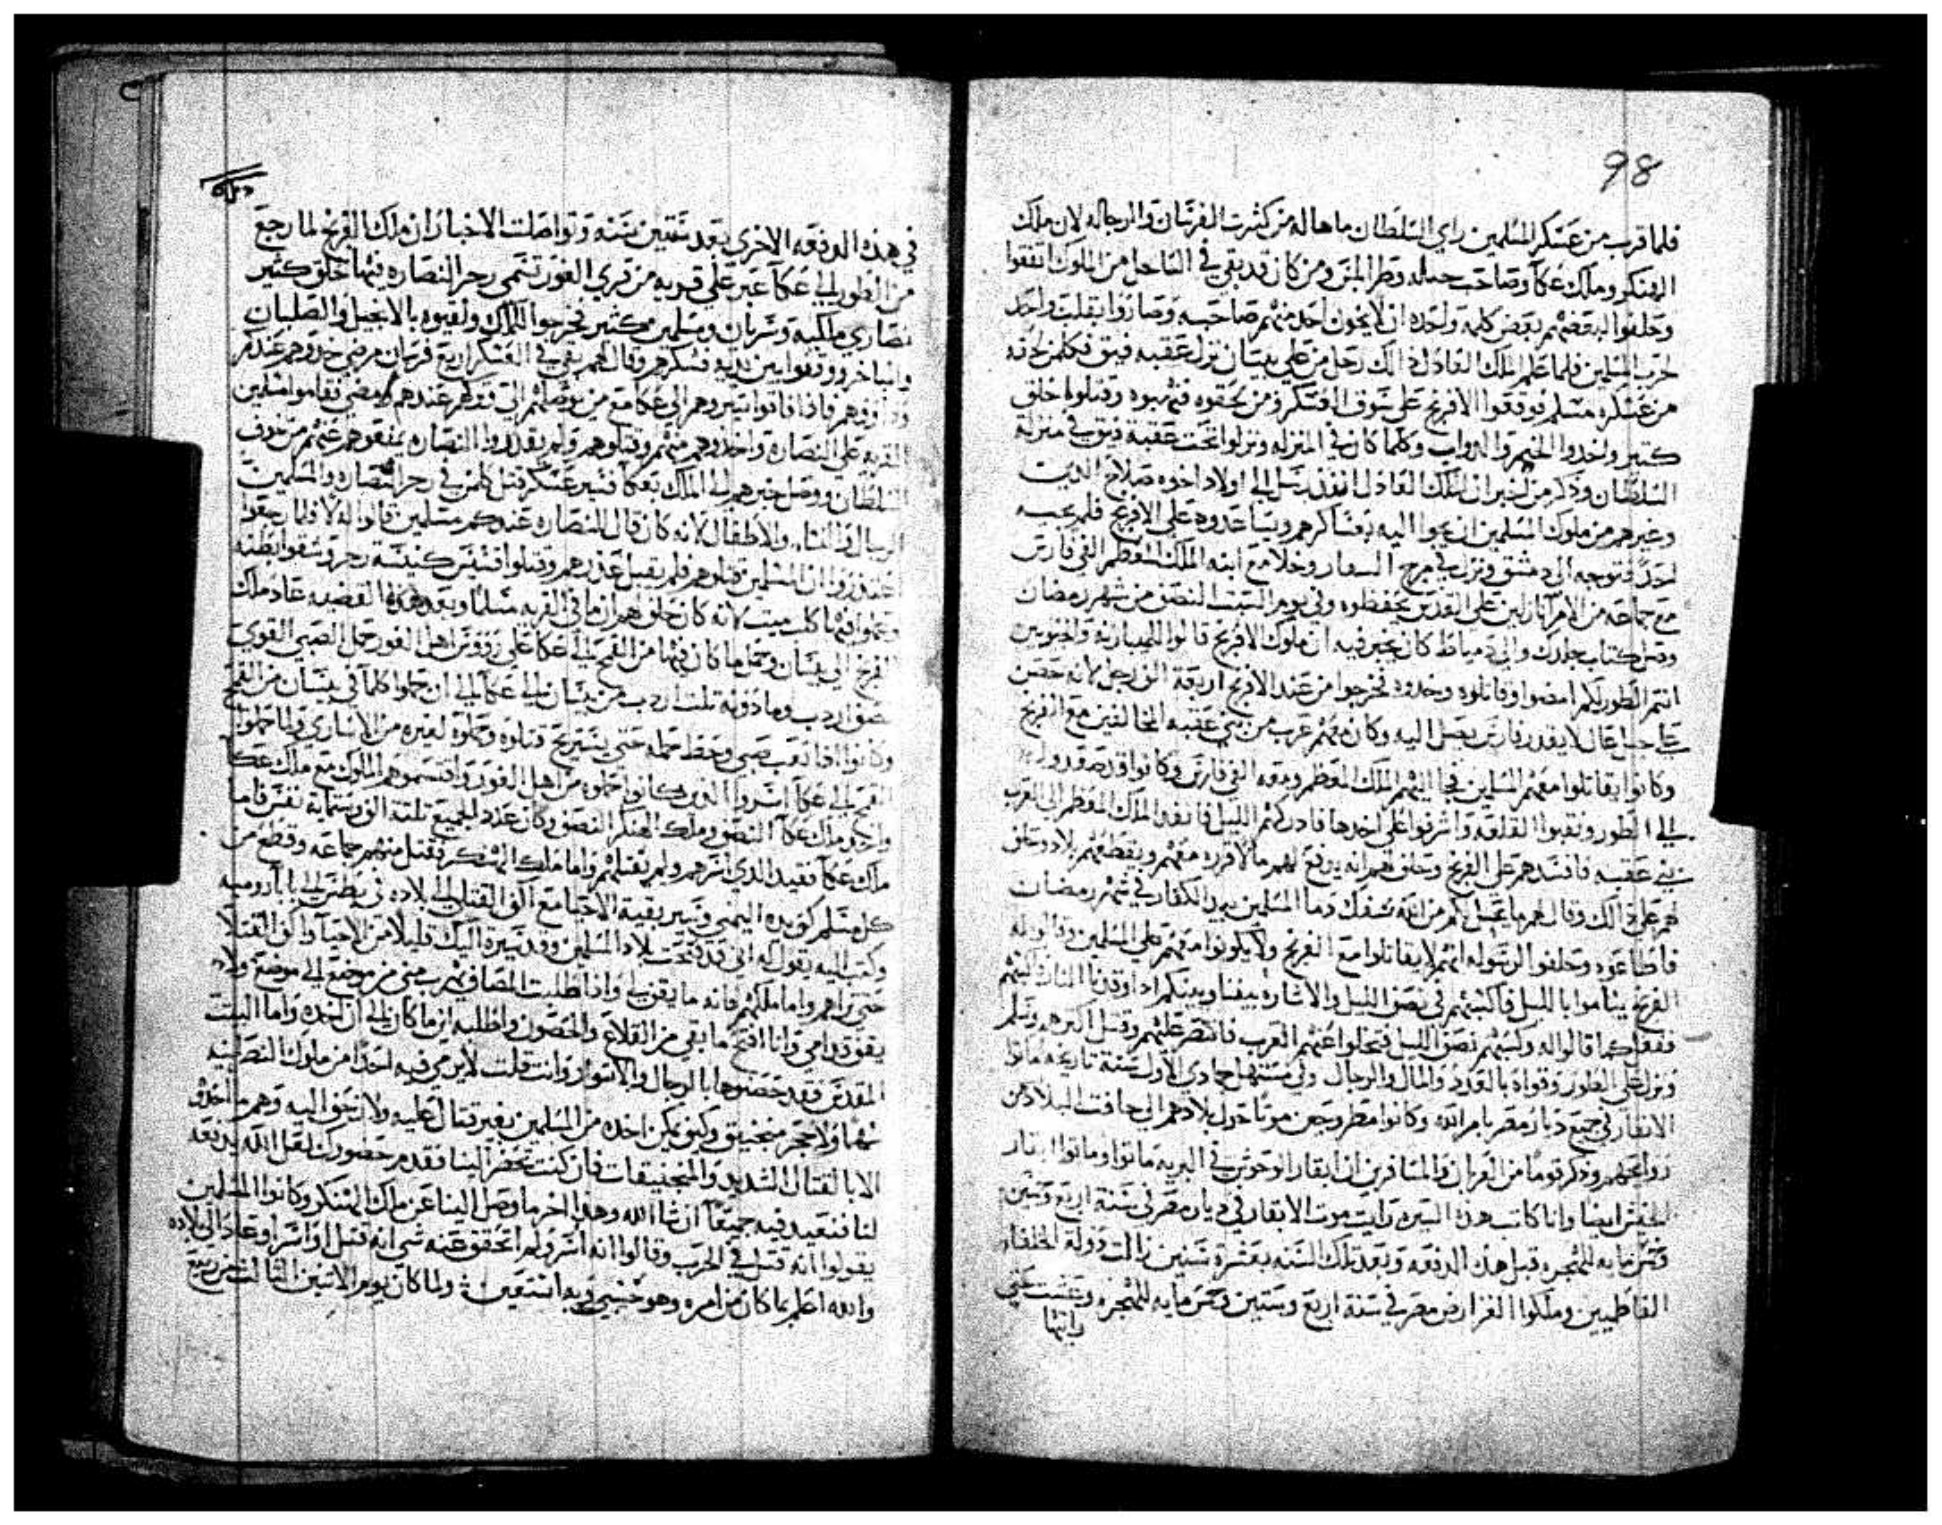 98
فلما قرب من عسكر المسلمين راي السلطان ما هاله من كثرت الفرسان والرجاله لان ملك
الهنكر وملك عكا وصاحب وطرابلس ومن كان قد بقي في الساحل من الملوك اتفقوا
وحلفوا لبعضهم بعض كلمة واحده ان لا يخون احد منهم صاحبه وصاروا بقلب واحد
لحرب المسلمين فلما علم الملك العادل ذالك رحل من علي بيسان نزل عقبه فيق فكلمن لحقه
من عسكره مسلم فوقفوا الافرنج علي سوق العسكر ومن لحقوه فنهبوه وقتلوا خلق
كتير واخدوا الخيم والدواب وكلما كان في المنزله ونزلوا تحت عقبة فيق في منزلة
السلطان وذكر من لخبر ان الملك العادل انفد رسل الي اولاد اخوه صلاح الدين
وغيرهم من ملوك المسلمين ان يجوا اليه بعساكرهم ويساعدوه علي الافرنج فلم يجيبه
احد فتوجه الي دمشق ونزل في مرج وخلا مع ابنه الملك المعظم الفي فارس
مع جماعه من الامرا نازلين علي القدس يحفظوه وفي يوم السبت النصف من شهر رمضان
وصل كتاب والي دمياط كان يخبر فيه ان ملوك الافرنج قالوا
انتم الطور لكم امضوا وقاتلوه وخدوه فخرجوا من عند الافرنج اربعة الف رجل لانه حصن
علي جبل عال لا يقدر فارس يصل اليه وكان معهم عرب من بني عقبه المخالفين مع الفرنج
وكانوا يقاتلوا معهم المسلمين فجا اليهم الملك المعظم ومعه الفي فارس وكانوا قد صعدوا
الي الطور ونقبوا القلعه واشرفوا علي اخدها فادركهم الليل فانفد الملك المعظم الي العرب
بني عقبه فافسدهم علي الفرنج وحلف لهم انه يدفع لهم ما لا قرره معهم ويقطعهم بلاد وحلف
لهم علي ذالك وقال لهم ما يحل لكم من الله سفك دما المسلمين بيد الكفار في شهر رمضان
فاطاعوه وحلفوا لرسوله انهم لا يقاتلوا مع الفرنج ولا يكونوا معهم علي المسلمين وقالوا له
الفرنج يناموا بالليل فاكبسهم في نصف الليل والاشاره بيننا وبينكم اذا وقدنا النار اكبسهم
ففعل كما قالوا له وكبسهم نصف الليل فتخلوا عنهم العرب فانتصر عليهم وقتل اكترهم وتسلم
ونزل علي الطور وقواه بالعدد والمال والرجال وفي مستهل جمادي الاول سنة تاريخه ماتوا
الابقار في جميع ديار مصر بامر الله وكانوا مطروحين موتا حول بلادهم الي جافت البلاد من
روايحهم وذكر قوما من العربان والمسافرين ان ابقار الوحوش في البريه ماتوا وماتوا ابقار
ايضا وانا كاتب هذه السيره رايت موت الابقار في ديار مصر في سنة اربع وستين
وخمس مايه للهجره قبل هذه الدفعه وبعد تلك السنه بعشرة سنين زالت دولة الخلفا
الفاطميين وملكوا الغز ارض مصر في سنة اربع وستين وخمس مايه للهجره وعشت حتي
رايتها
في هذه الدفعه الاخري بعد سنة وتواصلت الاخبار ان ملك الفرنج لما رجع
من الطور الي عكا عبر علي قريه من قري الغور تسمي رحر النصاره فيها خلق كتير
نصاري ملكيه وسريان ومسلمين كتير فخرجوا للملك ولقيوه بالانجيل والصلبان
والمباخر ووقفوا بين يديه فشكرهم وقال لهم بقي في العسكر اربع فرسان مرضي خدوهم عندكم
وداووهم فاذا فاقوا سيروهم الي عكا مع من يوصلهم الي وتركهم عندهم ومضي فقاموا مسلمين
القريه علي النصاره واخدوهم منهم وقتلوهم ولم يقدروا النصاره يمنعوهم عنهم من خوف
السلطان ووصل خبرهم الي الملك بعكا فسير عسكر قتل كلمن في رحر النصاره والمسلمين
الرجال والنسا والاطفال لانه كان قال للنصاره عندكم مسلمين قالوا له لا فلما رجعوا
اعتدروا ان المسلمين قتلوهم فلم يقبل عذرهم وقتلوا قسيس كنيسة رحر وشقوا بطنه
وجعلوا فيها كلب ميت لانه كان حلف لهم ان ما في القريه مسلما وبعد هذه القضيه عاد ملك
الفرنج الي بيسان وحمل ما كان فيها من القمح الي عكا علي رووس اهل الغور حمل الصبي القوي
نصف اردب وما دونه تلت اردب من بيسان الي عكا الي ان حملوا كلما في بيسان من القمح
وكانوا اذا تعب صبي وحط حمله حتي يستريح قتلوه وحملوه لغيره من الاساري ولما حملوا
القمح الي عكا اسروا الذين كانوا حملوه من اهل الغور واقتسموهم الملوك مع ملك عكا
واخد ملك عكا النصف وملك الهنكر النصف وكان عدد الجميع تلتة الف وستماية نفس فاما
ملك عكا فقيد الدي اسرهم ولم يقتلهم واما ملك الهنكر فقتل منهم جماعه وقطع من
كل مسلم كف يده اليمني وسير بقية الاحيا مع اكف القتلي الي بلاده في بطس الي بابا روميه
وكتب اليه يقول له اني قد فتحت بلاد المسلمين وقد سيرت اليك قليلا من الاحيا واكف القتلا
حتي تراهم واما ملكهم فانه ما يقف لي واذا طلبت المصاف يهرب مني من موضع الي موضع ولا
يقف قدامي وانا افتح ما بقي من القلاع والحصون واطلبه اين ما كان الي ان اخده واما البيت
المقدس فقد حصنوها بالرجال والاسوار وانت قلت لا يرمي فيه احدا من ملوك النصرانيه
سهما ولا حجر منجنيق وكيف يمكن اخده من المسلمين بغير قتال عليه ولا نزحف اليه وهم ما اخدوه
الا بالقتال الشديد والمنجنيقات فان كنت تحضر الينا فقدم حضورك لعل الله يدفعه
لنا فنعيد فيه جميعا ان شا الله وهذا اخر ما وصل الينا عن ملك الهنكر وكانوا المسلمين
يقولوا انه قتل في الحرب وقالوا انه اسر ولم اتحقق عنه شي انه قتل او اسر او عاد الي بلاده
والله اعلم بما كان من امره وهو حسبي وبه استعين ولما كان يوم الاتنين التالت من ربيع